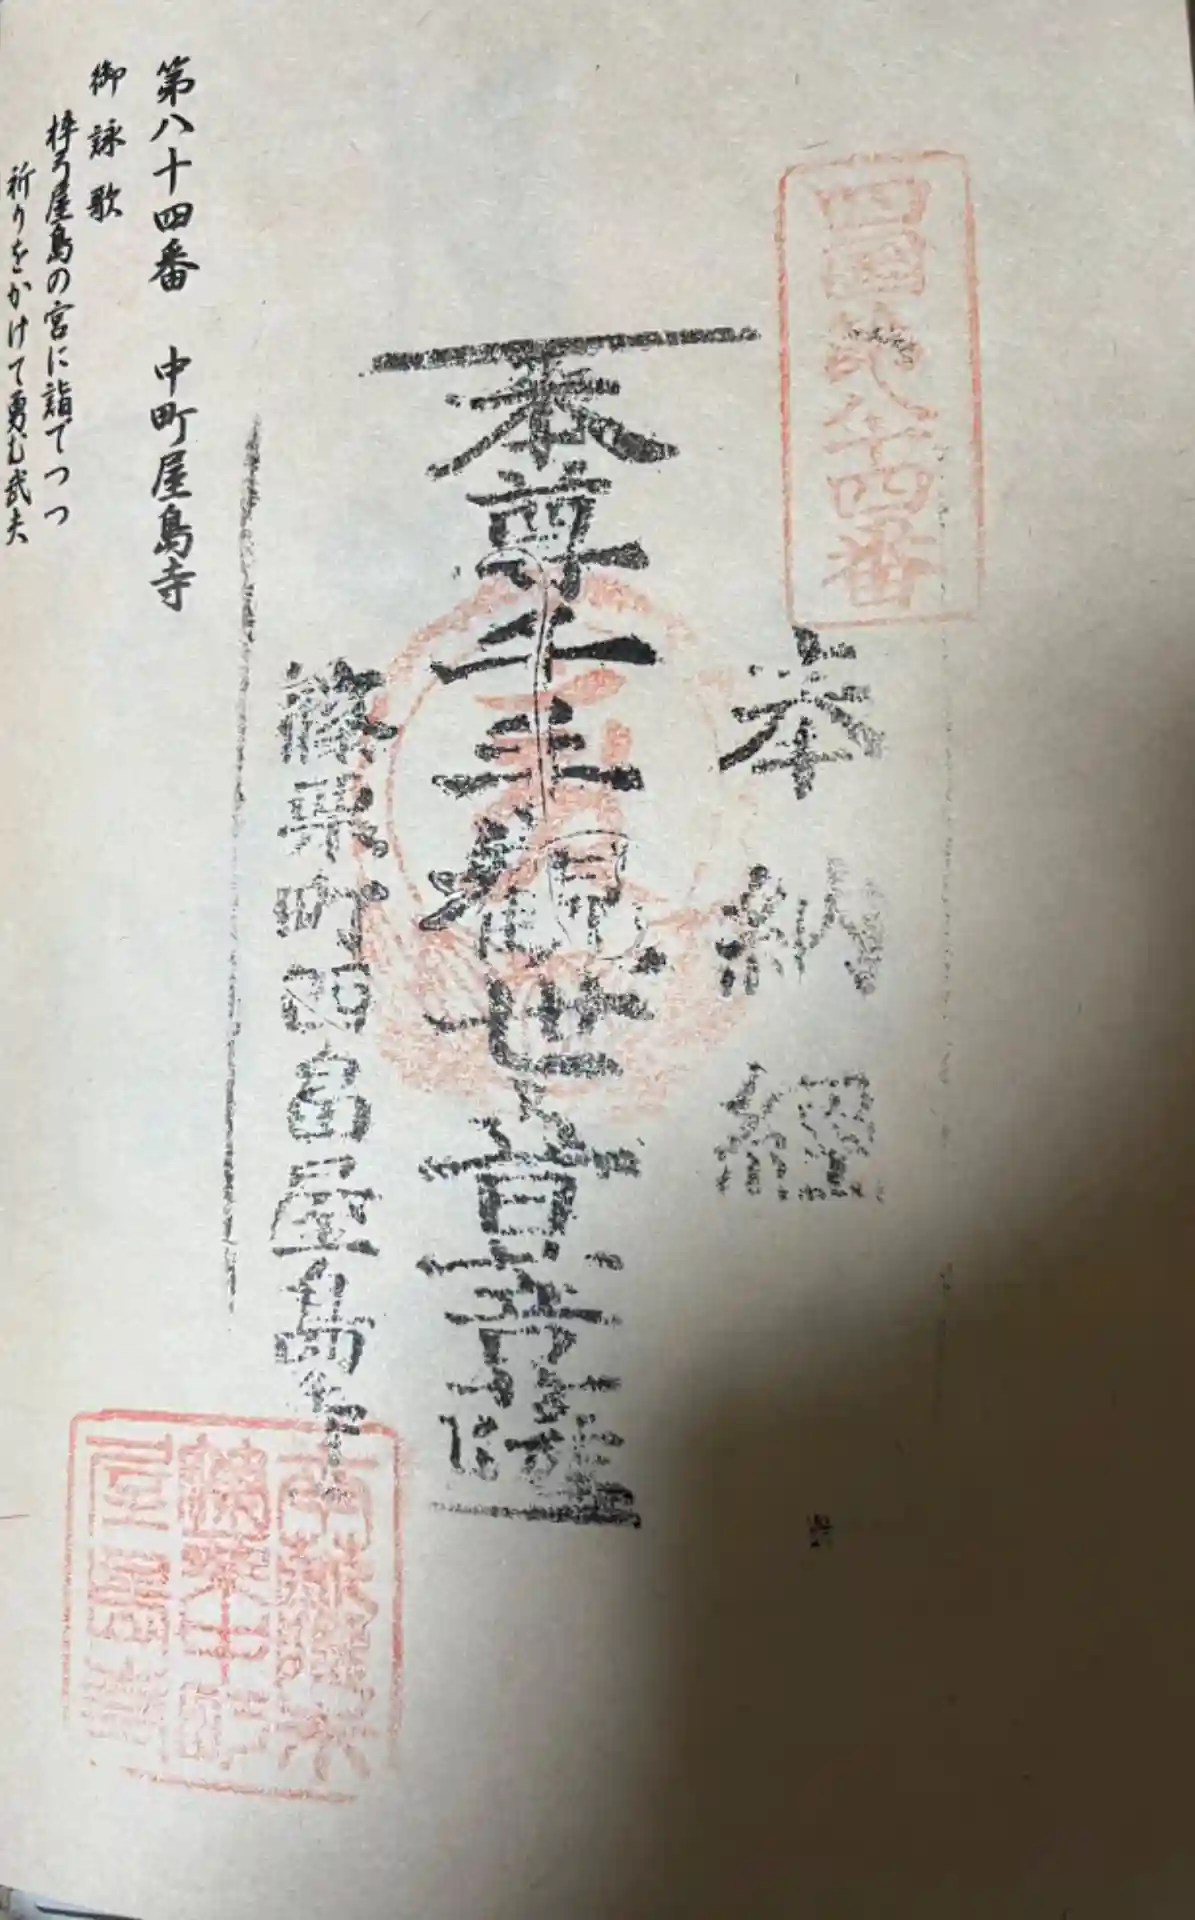 四國第八十四番
奉納經
本尊千手觀世音菩薩
篠栗町田中屋島寺
第八十四番 中町屋島寺
御詠歌
梓弓屋島の宮に詣でつつ
祈りをかけて勇む武夫